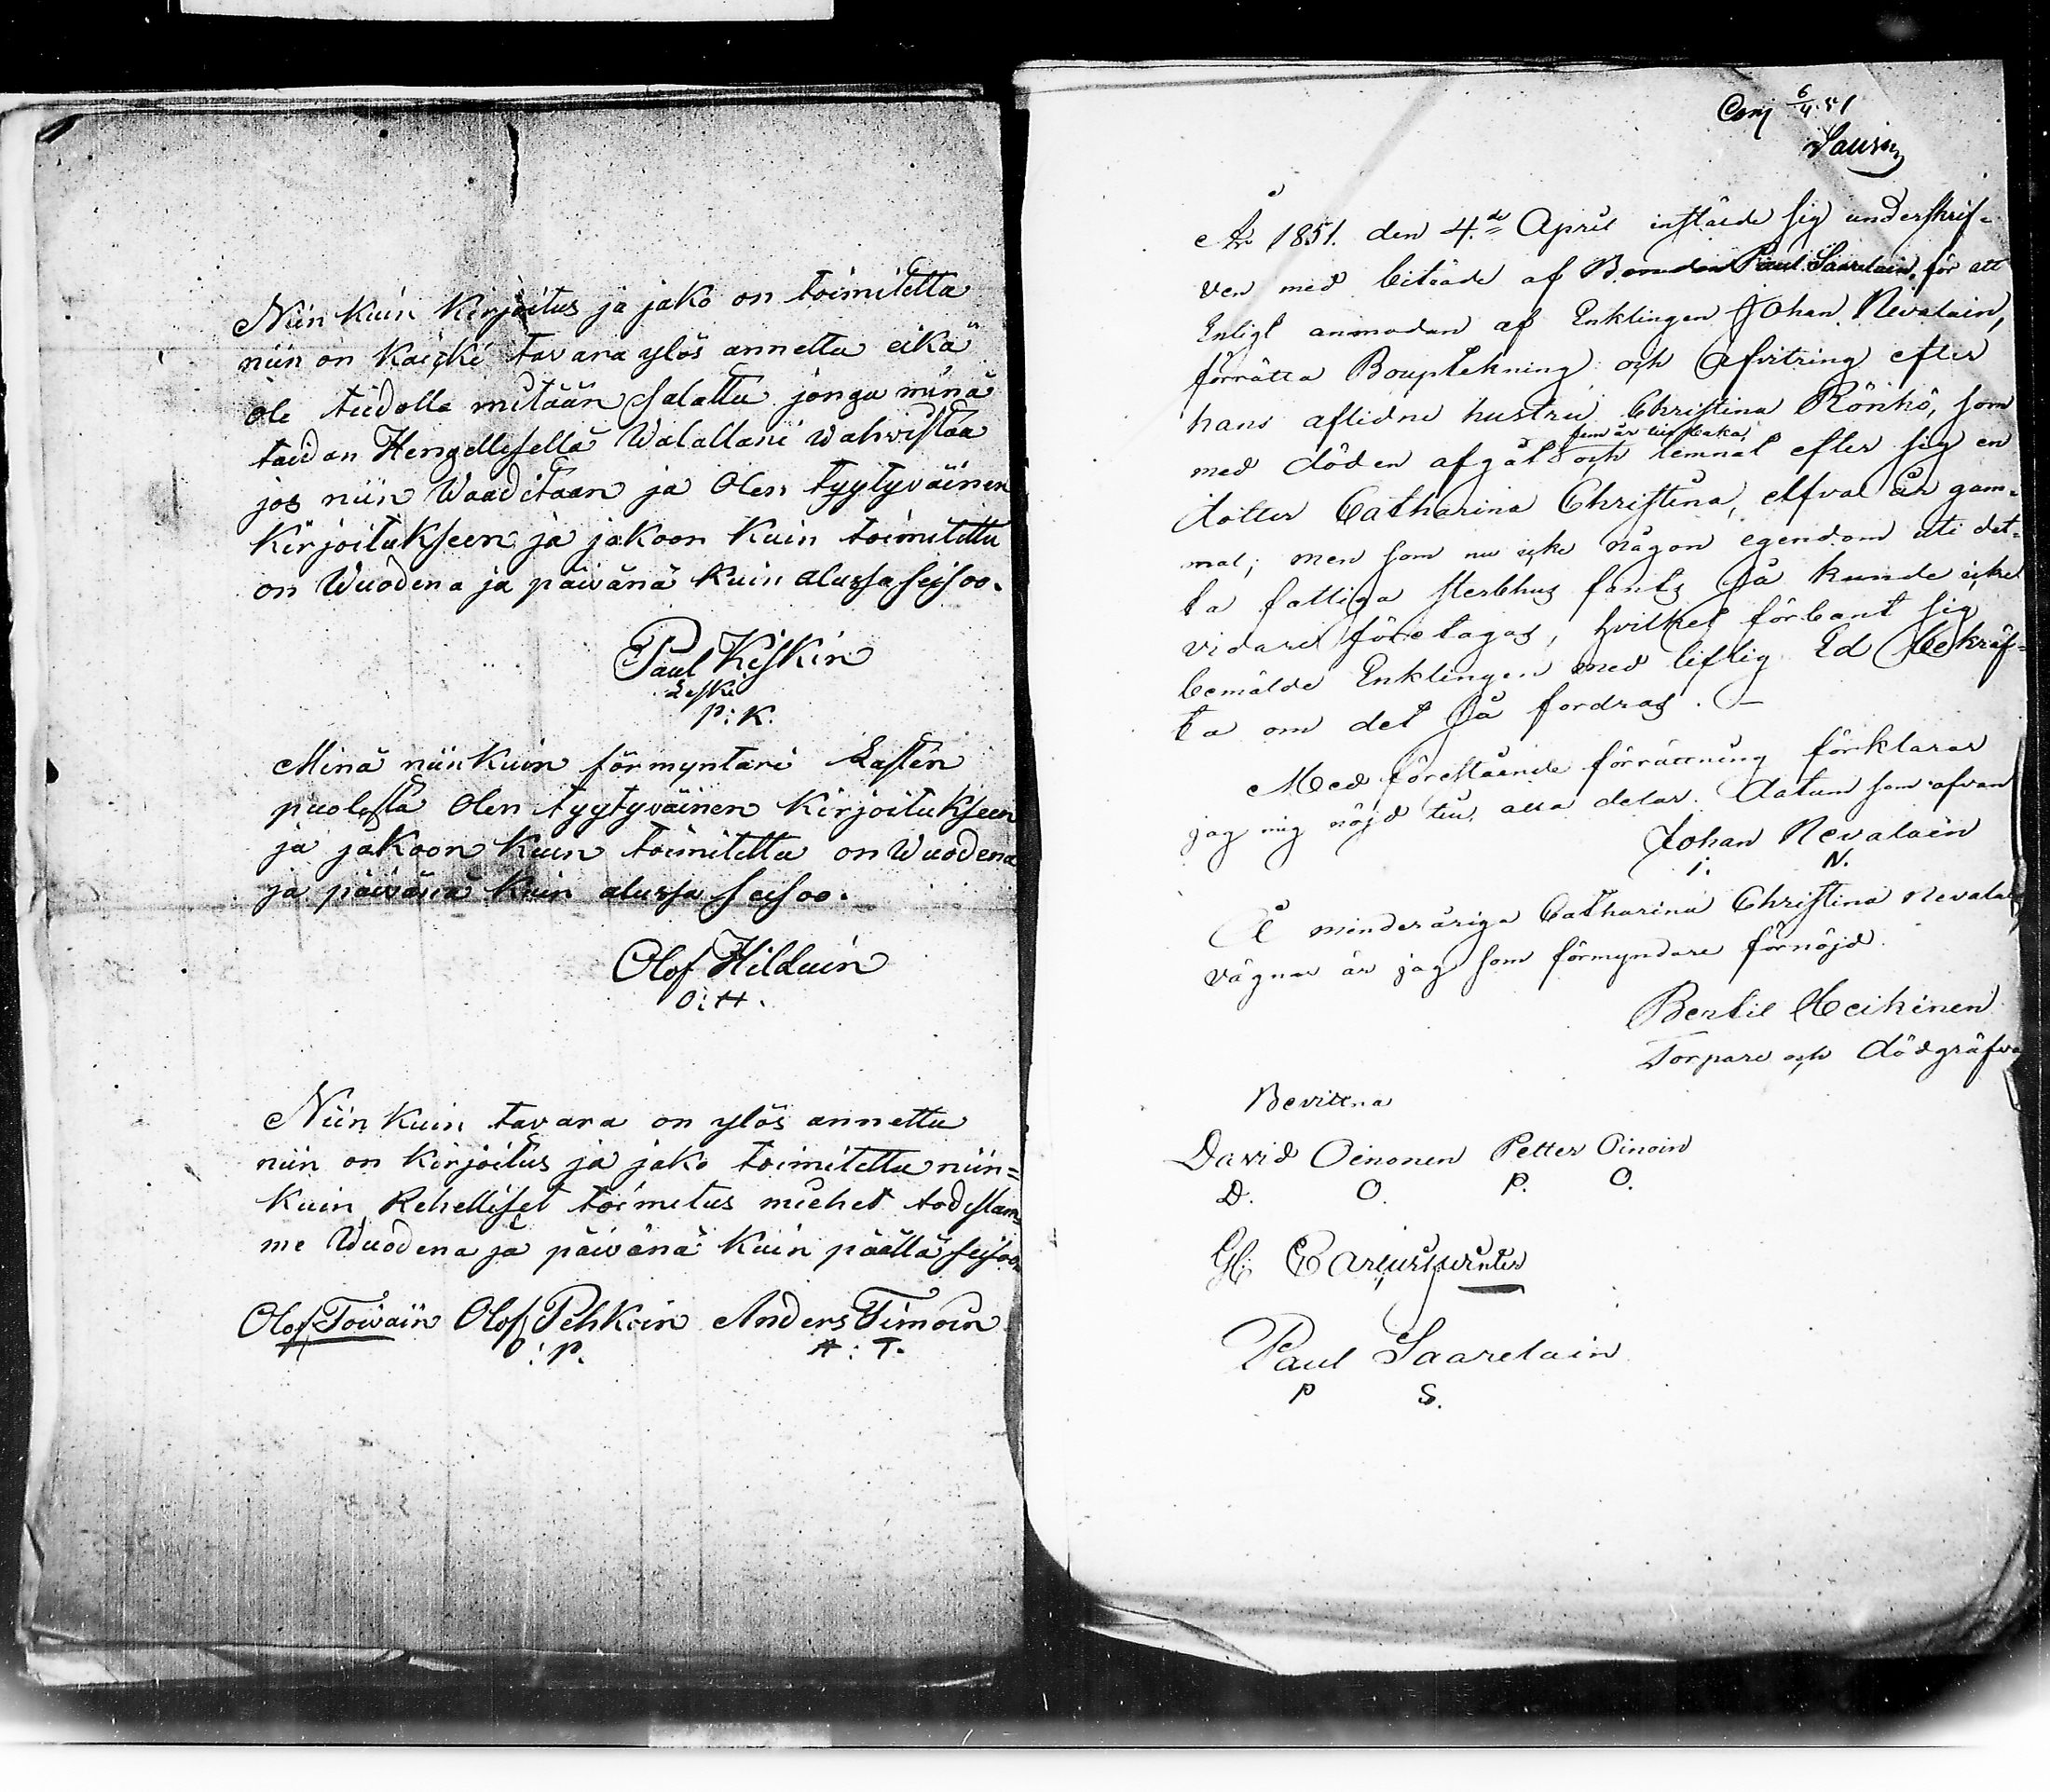 Niin kuin Kirjoitus ja jako on toimitettu
niin on kaicki tavara ylös annettu eikä
ole tiedolla mitään salattu jonga minä
taidan Hengellisellä Walallani wahvistaa
jos niin Waaditaan ja Olen tyytyväinen
Kirjoitukseen ja jakoon Kuin toimitettu
on Wuodena ja päivänä kuin alussa seisoo.
Paul Kiskin
Leski
P: K.
Minä niinkuin förmyntari Lasten
puolesta Olen tyytyväinen Kirjoitukseen
ja jakoon kuin toimitettu on Wuodena
ja päivänä kuin alussa seisoo.
Olof Hilduin
O: H.
Niin kuin tavara on ylös annettu
niin on kirjoitus ja jako toimitettu niin=
kuin Rehelliset toimitus miehet todistam
me Wuodena ja päivänä kuin päällä seisoo
Olof Toivain Olof Pehkoin Anders Timoin
O: P. A: T.
6/4 51
År 1851. den 4.de April instälde sig underskrif=
ven med biträde af Bonden Paul Saarelain, för att
Enligt anmodan af Enklingen Johan Nevalain,
förrätta Bouptekning och Afvitring efter
hans aflidne hustru Christina Rönkö, som
fem år tillbaka
med döden afgåt och lemnat efter sig en
dotter Catharina Christina, elfva år gam=
mal; men som nu icke någon egendom uti det=
ta fattiga sterbhus fants så kunde icke
vidare företagas, hvilket förbant sig
bemälde Enklingen med liflig Ed bekräf=
ta om det så fordras. —
Med förestående förrättning förklarar
jag mig nöjd till alla delar. Datum som ofvan
Johan Nevalain
I. N.
Å minderåriga Catharina Christina Nevala
vägnar är jag som förmyndare förnöjd.
Bertil Heikinen
Torpare och dödgräfva
Bevittna
David Oinonen Petter Oinoin
D. O. P. O.
Paul Saarelain
P S.